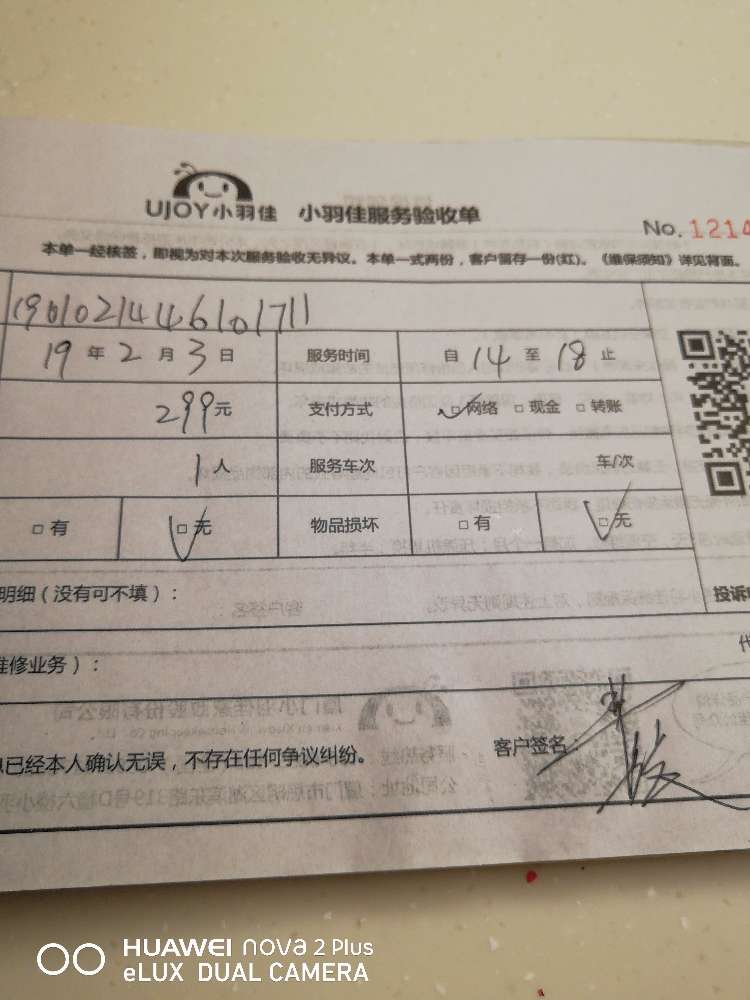 UJOY小羽佳 小羽佳服务验收单
No. 1214
本单一经核签，即视为对本次服务验收无异议。本单一式两份，客户留存一份(红)。《维保须知》详见背面。
1901021446101711
19 年 2 月 3 日 服务时间 自 14 至 18 止
299元 支付方式 □ 网络 □ 现金 □ 转账
1 人 服务车次 车/次
□ 有 □ 无 物品损坏 □ 有 □ 无
明细（没有可不填）：
投诉
维修业务）：
代
已经本人确认无误，不存在任何争议纠纷。
客户签名：
HUAWEI nova 2 Plus
eLUX DUAL CAMERA